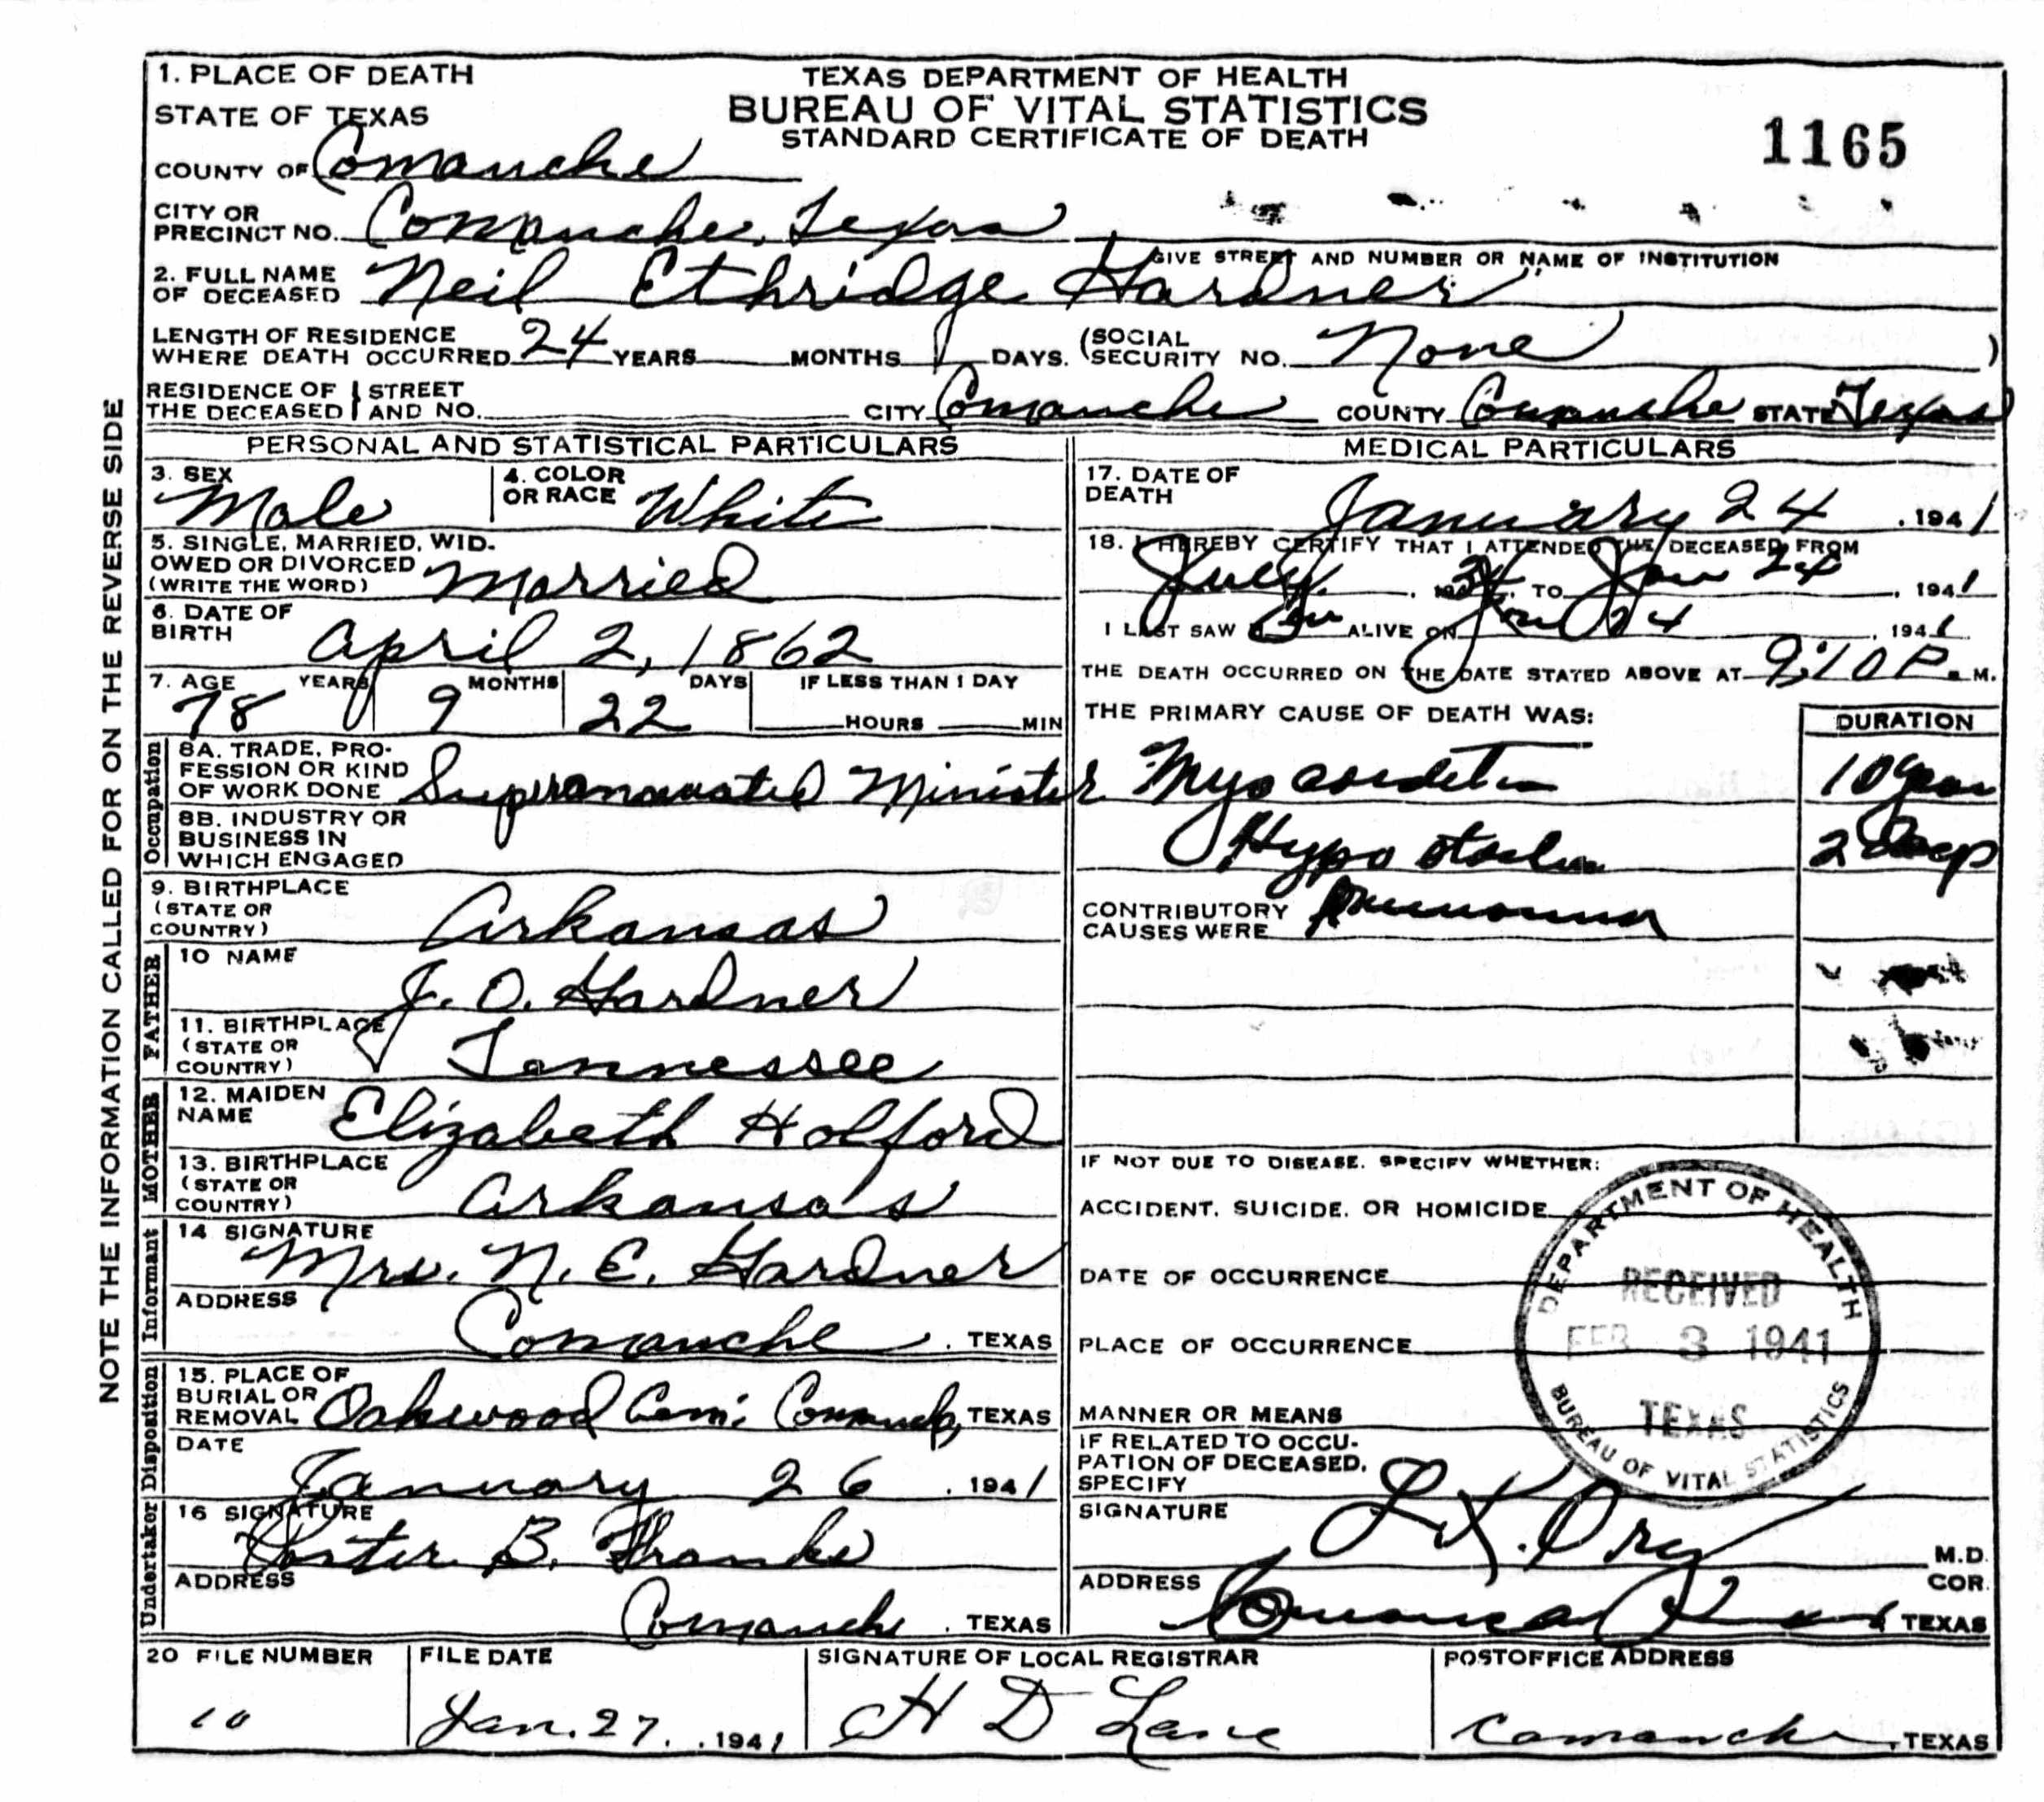 1. PLACE OF DEATH
STATE OF TEXAS
TEXAS DEPARTMENT OF HEALTH
BUREAU OF VITAL STATISTICS
STANDARD CERTIFICATE OF DEATH
1165
COUNTY OF Comanche
CITY OR PRECINCT NO. Comanche, Texas
GIVE STREET AND NUMBER OR NAME OF INSTITUTION
2. FULL NAME OF DECEASED Neil Ethridge Gardner
LENGTH OF RESIDENCE WHERE DEATH OCCURRED 24 YEARS MONTHS DAYS. (SOCIAL SECURITY NO. None )
RESIDENCE OF THE DECEASED STREET AND NO. CITY Comanche COUNTY Comanche STATE Texas
PERSONAL AND STATISTICAL PARTICULARS
3. SEX Male
4. COLOR OR RACE White
5. SINGLE, MARRIED, WIDOWED OR DIVORCED (WRITE THE WORD) Married
6. DATE OF BIRTH April 2, 1862
7. AGE YEARS 78 MONTHS 9 DAYS 22 IF LESS THAN 1 DAY HOURS MIN
Occupation
8A. TRADE, PROFESSION OR KIND OF WORK DONE Superannuated Minister
8B. INDUSTRY OR BUSINESS IN WHICH ENGAGED
9. BIRTHPLACE (STATE OR COUNTRY) Arkansas
FATHER
10 NAME J. O. Gardner
11. BIRTHPLACE (STATE OR COUNTRY) Tennessee
MOTHER
12. MAIDEN NAME Elizabeth Holford
13. BIRTHPLACE (STATE OR COUNTRY) Arkansas
Informant
14 SIGNATURE Mrs. N. E. Gardner
ADDRESS Comanche, TEXAS
Undertaker Disposition
15. PLACE OF BURIAL OR REMOVAL Oakwood Cem. Comanche, TEXAS
DATE January 26, 1941
16 SIGNATURE B.
ADDRESS Comanche, TEXAS
MEDICAL PARTICULARS
17. DATE OF DEATH January 24, 1941
18. I HEREBY CERTIFY THAT I ATTENDED THE DECEASED FROM
July, 34, TO Jan 24, 1941
I LAST SAW him ALIVE ON Jan 24, 1941
THE DEATH OCCURRED ON THE DATE STATED ABOVE AT 9:10 P. M.
THE PRIMARY CAUSE OF DEATH WAS:
DURATION
Myocarditis 10 year
Hypostatic 2 days
CONTRIBUTORY CAUSES WERE pneumonia
IF NOT DUE TO DISEASE, SPECIFY WHETHER:
ACCIDENT, SUICIDE, OR HOMICIDE
DATE OF OCCURRENCE
PLACE OF OCCURRENCE
MANNER OR MEANS
IF RELATED TO OCCUPATION OF DECEASED, SPECIFY
DEPARTMENT OF HEALTH
RECEIVED
FEB 3 1941
TEXAS
BUREAU OF VITAL STATISTICS
SIGNATURE M.D. COR.
ADDRESS Comanche TEXAS
20 FILE NUMBER 10
FILE DATE Jan. 27, 1941
SIGNATURE OF LOCAL REGISTRAR H D Lane
POSTOFFICE ADDRESS Comanche, TEXAS
NOTE THE INFORMATION CALLED FOR ON THE REVERSE SIDE